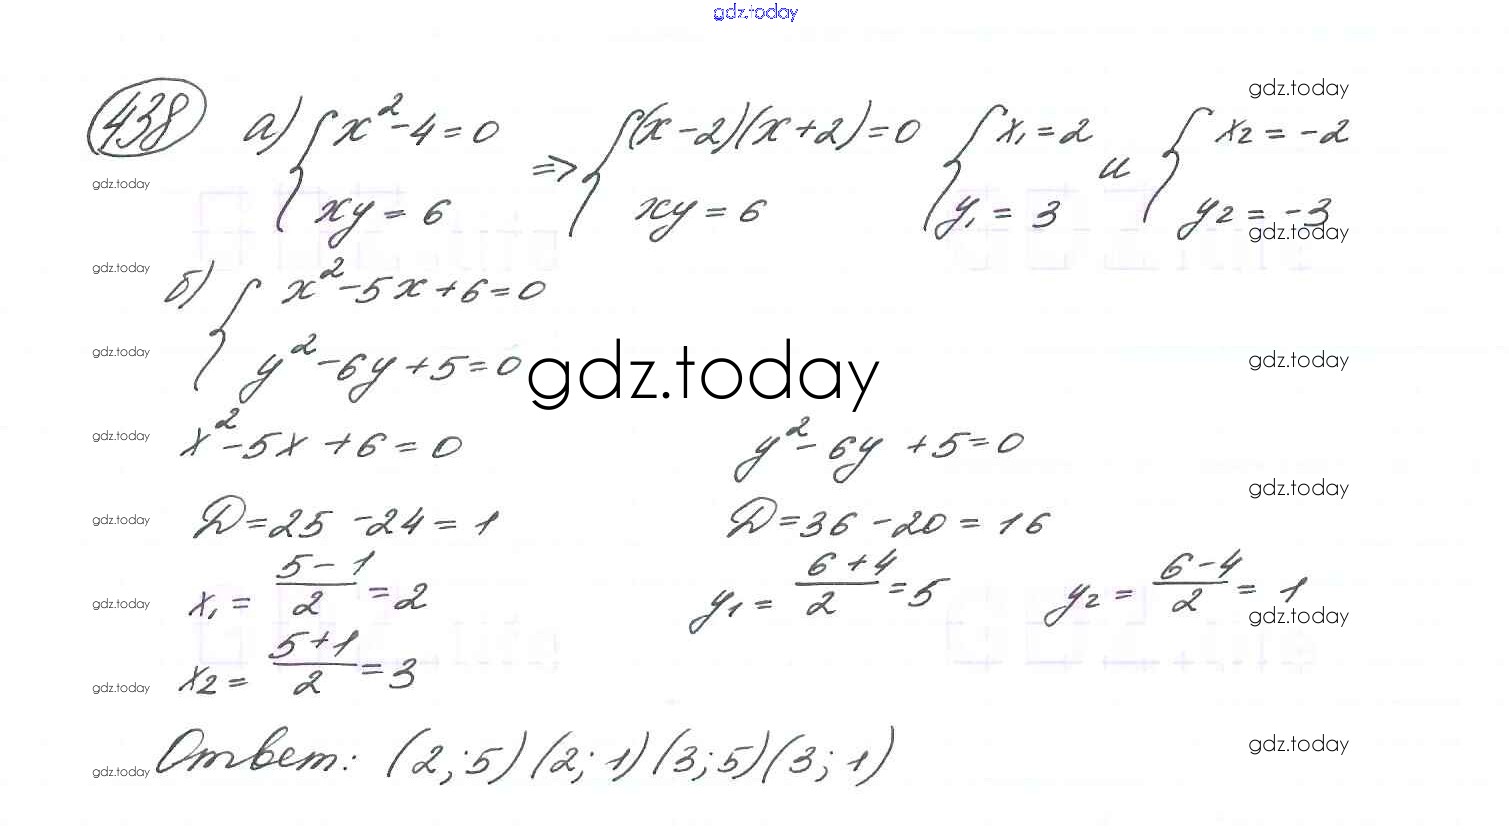 gdz.today
438 а) { x² - 4 = 0 ⇒ { (x - 2)(x + 2) = 0 { x₁ = 2 и { x₂ = -2 gdz.today
gdz.today xy = 6 xy = 6 y₁ = 3 y₂ = -3
gdz.today gdz.today
б) { x² - 5x + 6 = 0
gdz.today y² - 6y + 5 = 0 gdz.today gdz.today
gdz.today x² - 5x + 6 = 0 y² - 6y + 5 = 0
gdz.today
gdz.today D = 25 - 24 = 1 D = 36 - 20 = 16
gdz.today x₁ = (5 - 1)/2 = 2 y₁ = (6 + 4)/2 = 5 y₂ = (6 - 4)/2 = 1
gdz.today
gdz.today x₂ = (5 + 1)/2 = 3
Ответ: (2; 5) (2; 1) (3; 5) (3; 1) gdz.today
gdz.today